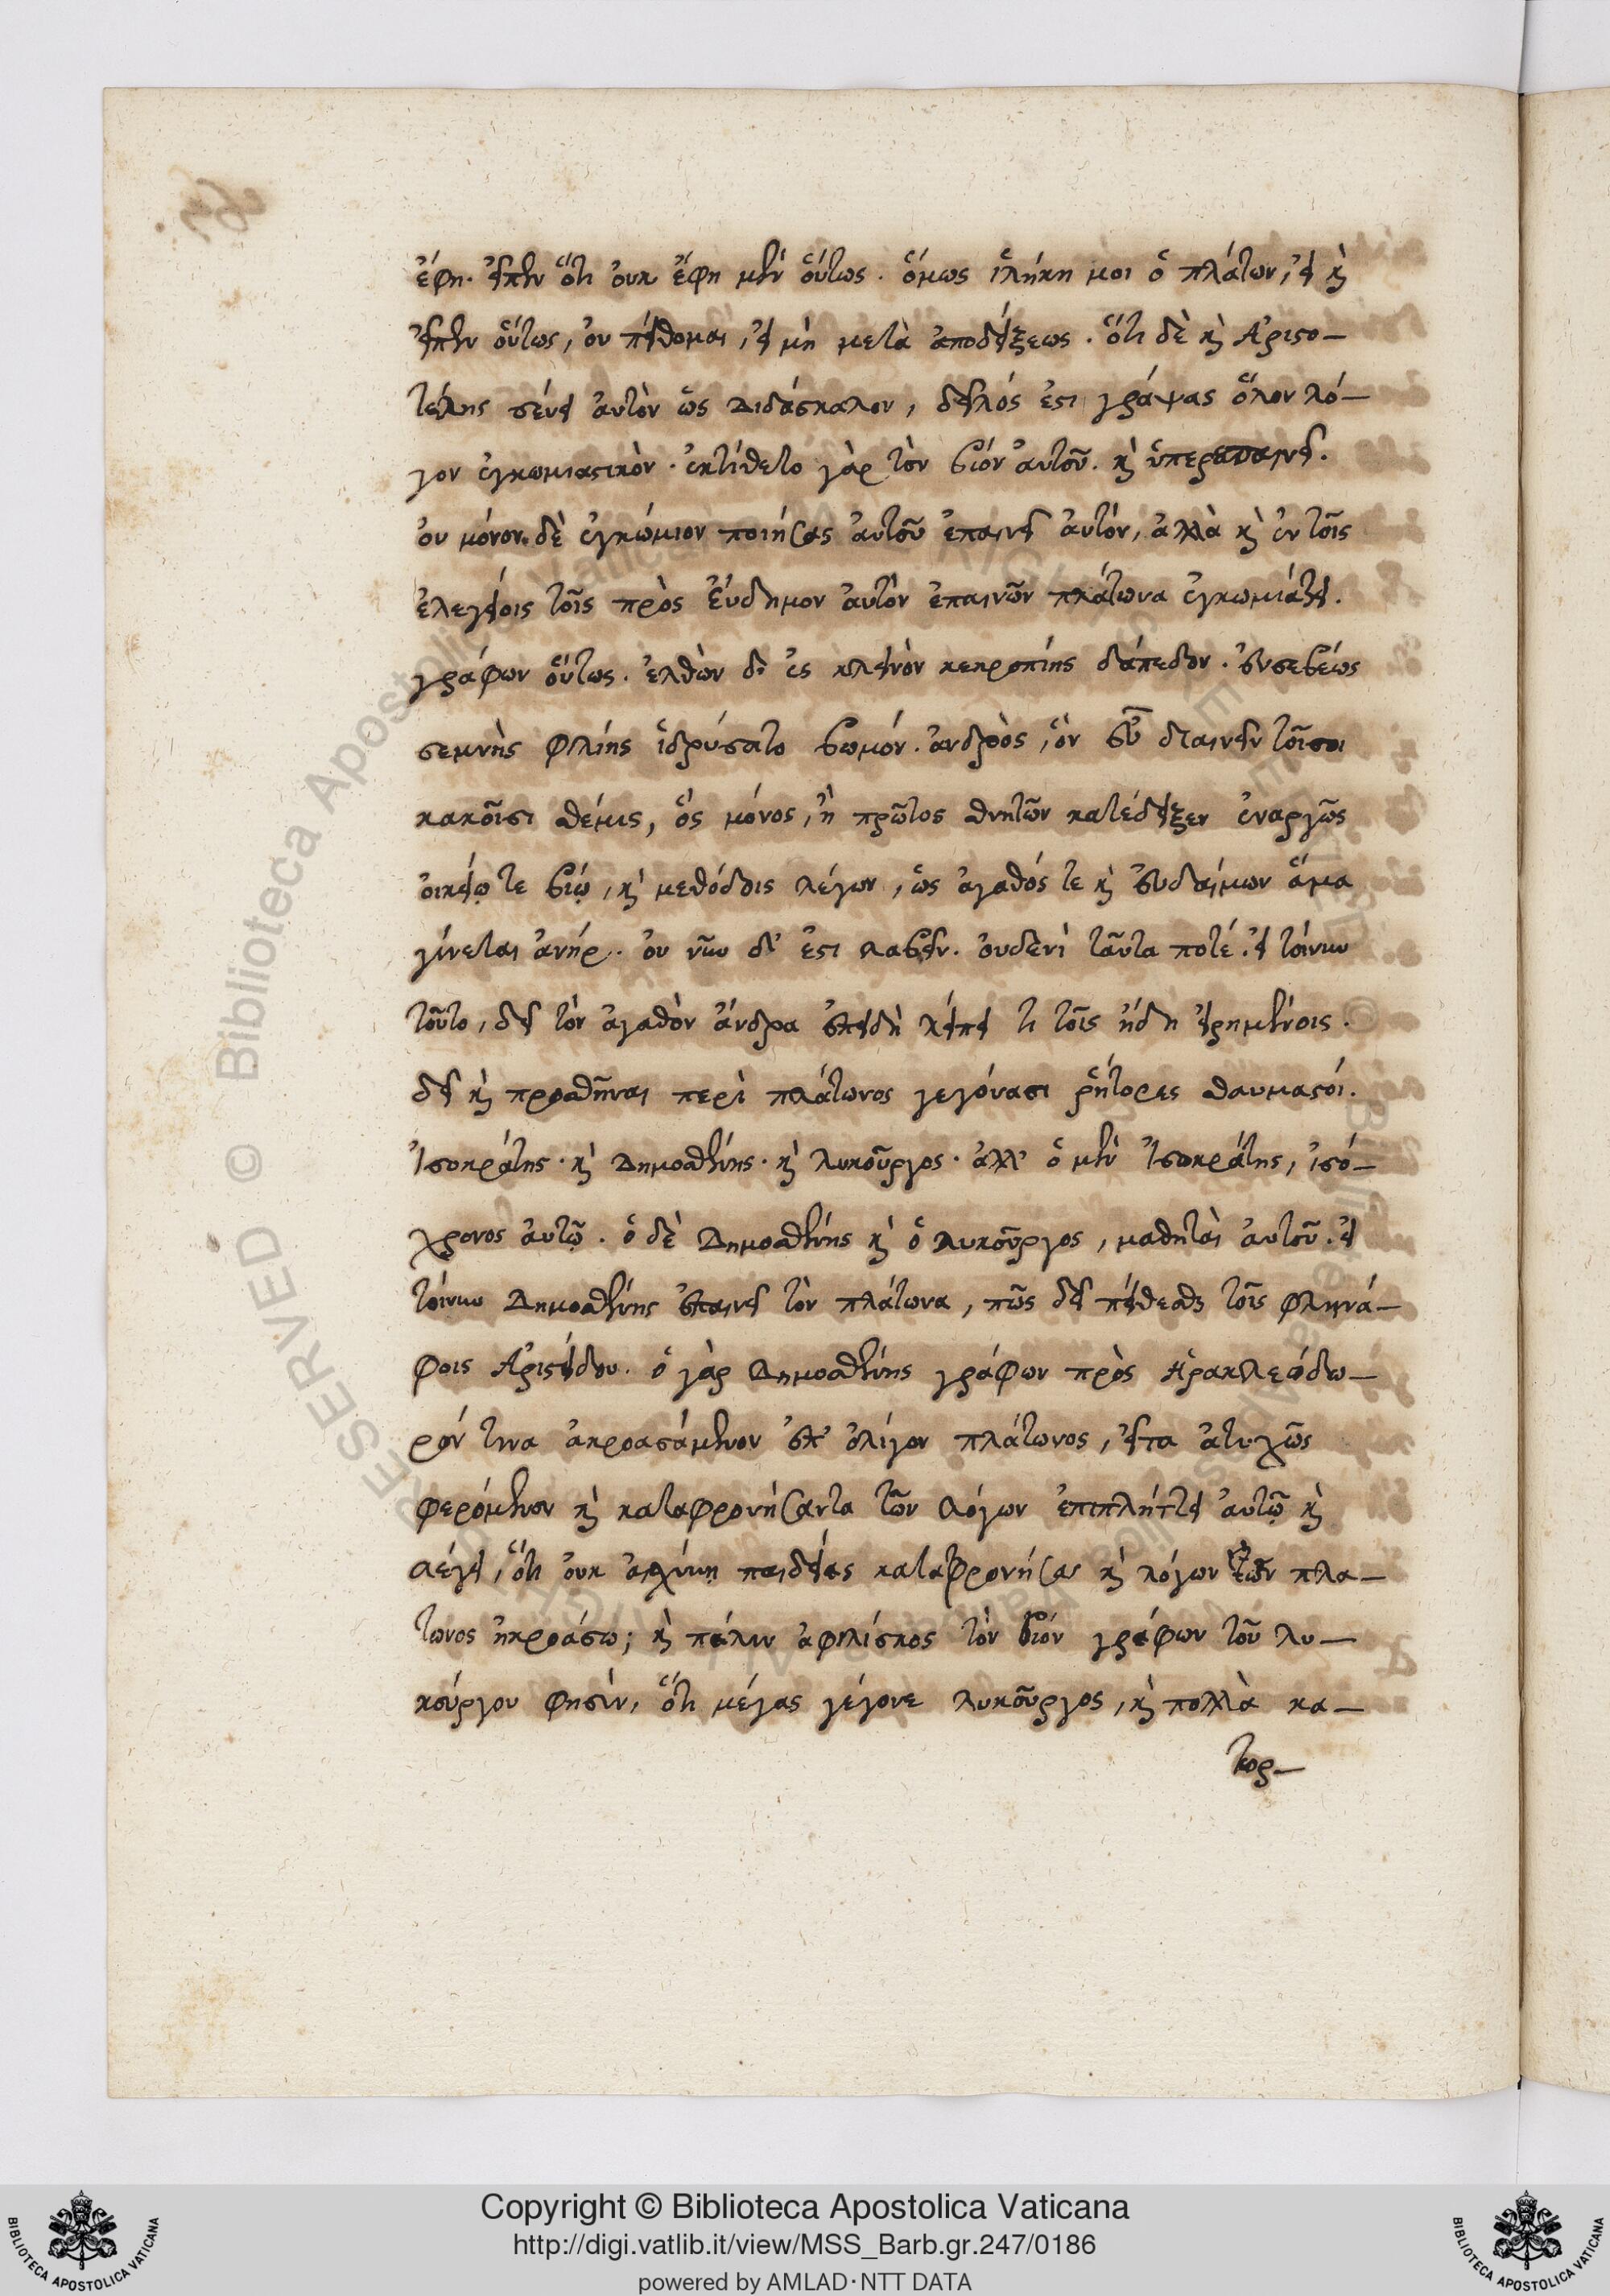 ἔφη. εἶπεν ὅτι οὐκ ἔφη μὲν οὕτως. ὅμως ἱλήκη μοι ὁ πλάτων, εἰ καὶ
εἶπεν οὕτως, οὐ πείθομαι, εἰ μὴ μετὰ ἀποδείξεως. ὅτι δὲ καὶ Ἀριστο–
τέλης σέβει αὐτὸν ὡς διδάσκαλον, δῆλός ἐστι γράψας ὅλον λό–
γον ἐγκωμιαστικὸν. ἐκτίθετο γὰρ τὸν βίον αὐτοῦ. καὶ ὑπερεπαινεῖ.
οὐ μόνον δὲ ἐγκώμιον ποιήσας αὐτοῦ ἐπαινεῖ αὐτόν, ἀλλὰ καὶ ἐν τοῖς
ἐλεγείοις τοῖς πρὸς Εὔδημον αὐτὸν ἐπαινῶν πλάτωνα ἐγκωμιάζει.
γράφων οὕτως. ἐλθὼν δ' ἐς κλεινὸν κεκροπίης δάπεδον. εὐσεβέως
σεμνῆς φιλίης ἱδρύσατο βωμόν. ἀνδρὸς, ὃν οὐδ' αἰνεῖν τοῖσι
κακοῖσι θέμις, ὃς μόνος, ἢ πρῶτος θνητῶν κατέδειξεν ἐναργῶς
οἰκείῳ τε βίῳ, καὶ μεθόδοις λέγων, ὡς ἀγαθός τε καὶ εὐδαίμων ἅμα
γίνεται ἀνήρ. οὐ νῦν δ' ἔστι λαβεῖν. οὐδενὶ ταῦτα ποτέ. εἰ τοίνυν
τοῦτο, δεῖ τὸν ἀγαθὸν ἄνδρα ἐπειδὴ λείπει τι τοῖς ἤδη εἰρημένοις.
δεῖ καὶ προσθῆναι περὶ πλάτωνος γεγόνασι ῥήτορες θαυμαστοί.
Ἰσοκράτης. καὶ Δημοσθένης. καὶ λυκοῦργος. ἀλλ' ὁ μὲν Ἰσοκράτης, ἰσό–
χρονος αὐτῷ. ὁ δὲ Δημοσθένης καὶ ὁ Λυκοῦργος, μαθηταὶ αὐτοῦ. εἰ
τοίνυν Δημοσθένης ἐπαινεῖ τὸν πλάτωνα, πῶς δεῖ πείθεσθαι τοῖς φληνά–
φοις Ἀριστείδου. ὁ γὰρ Δημοσθένης γράφων πρὸς Ἡρακλεόδω–
ρόν τινα ἀκροασάμενον ἐπ' ὀλίγον πλάτωνος, εἶτα ἀτυχῶς
φερόμενον καὶ καταφρονήσαντα τῶν λόγων ἐπιπλήττει αὐτῷ καὶ
λέγει, ὅτι οὐκ αἰσχύνῃ παιδείας καταφρονήσας καὶ λόγων ὧν πλά–
τωνος ἠκροάσω; καὶ πάλιν ὁ φιλίσκος τὸν βίον γράφων τοῦ λυ–
κούργου φησὶν, ὅτι μέγας γέγονε λυκοῦργος, καὶ πολλὰ κα–
τορ–
Copyright © Biblioteca Apostolica Vaticana
http://digi.vatlib.it/view/MSS_Barb.gr.247/0186
powered by AMLAD·NTT DATA